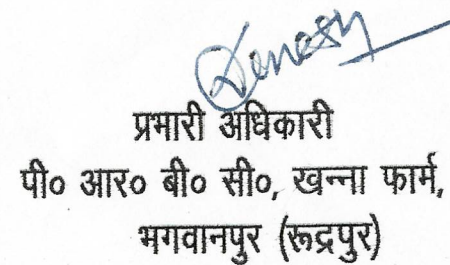 प्रभारी अधिकारी
पी० आर० बी० सी०, खन्ना फार्म,
भगवानपुर (रूद्रपुर)